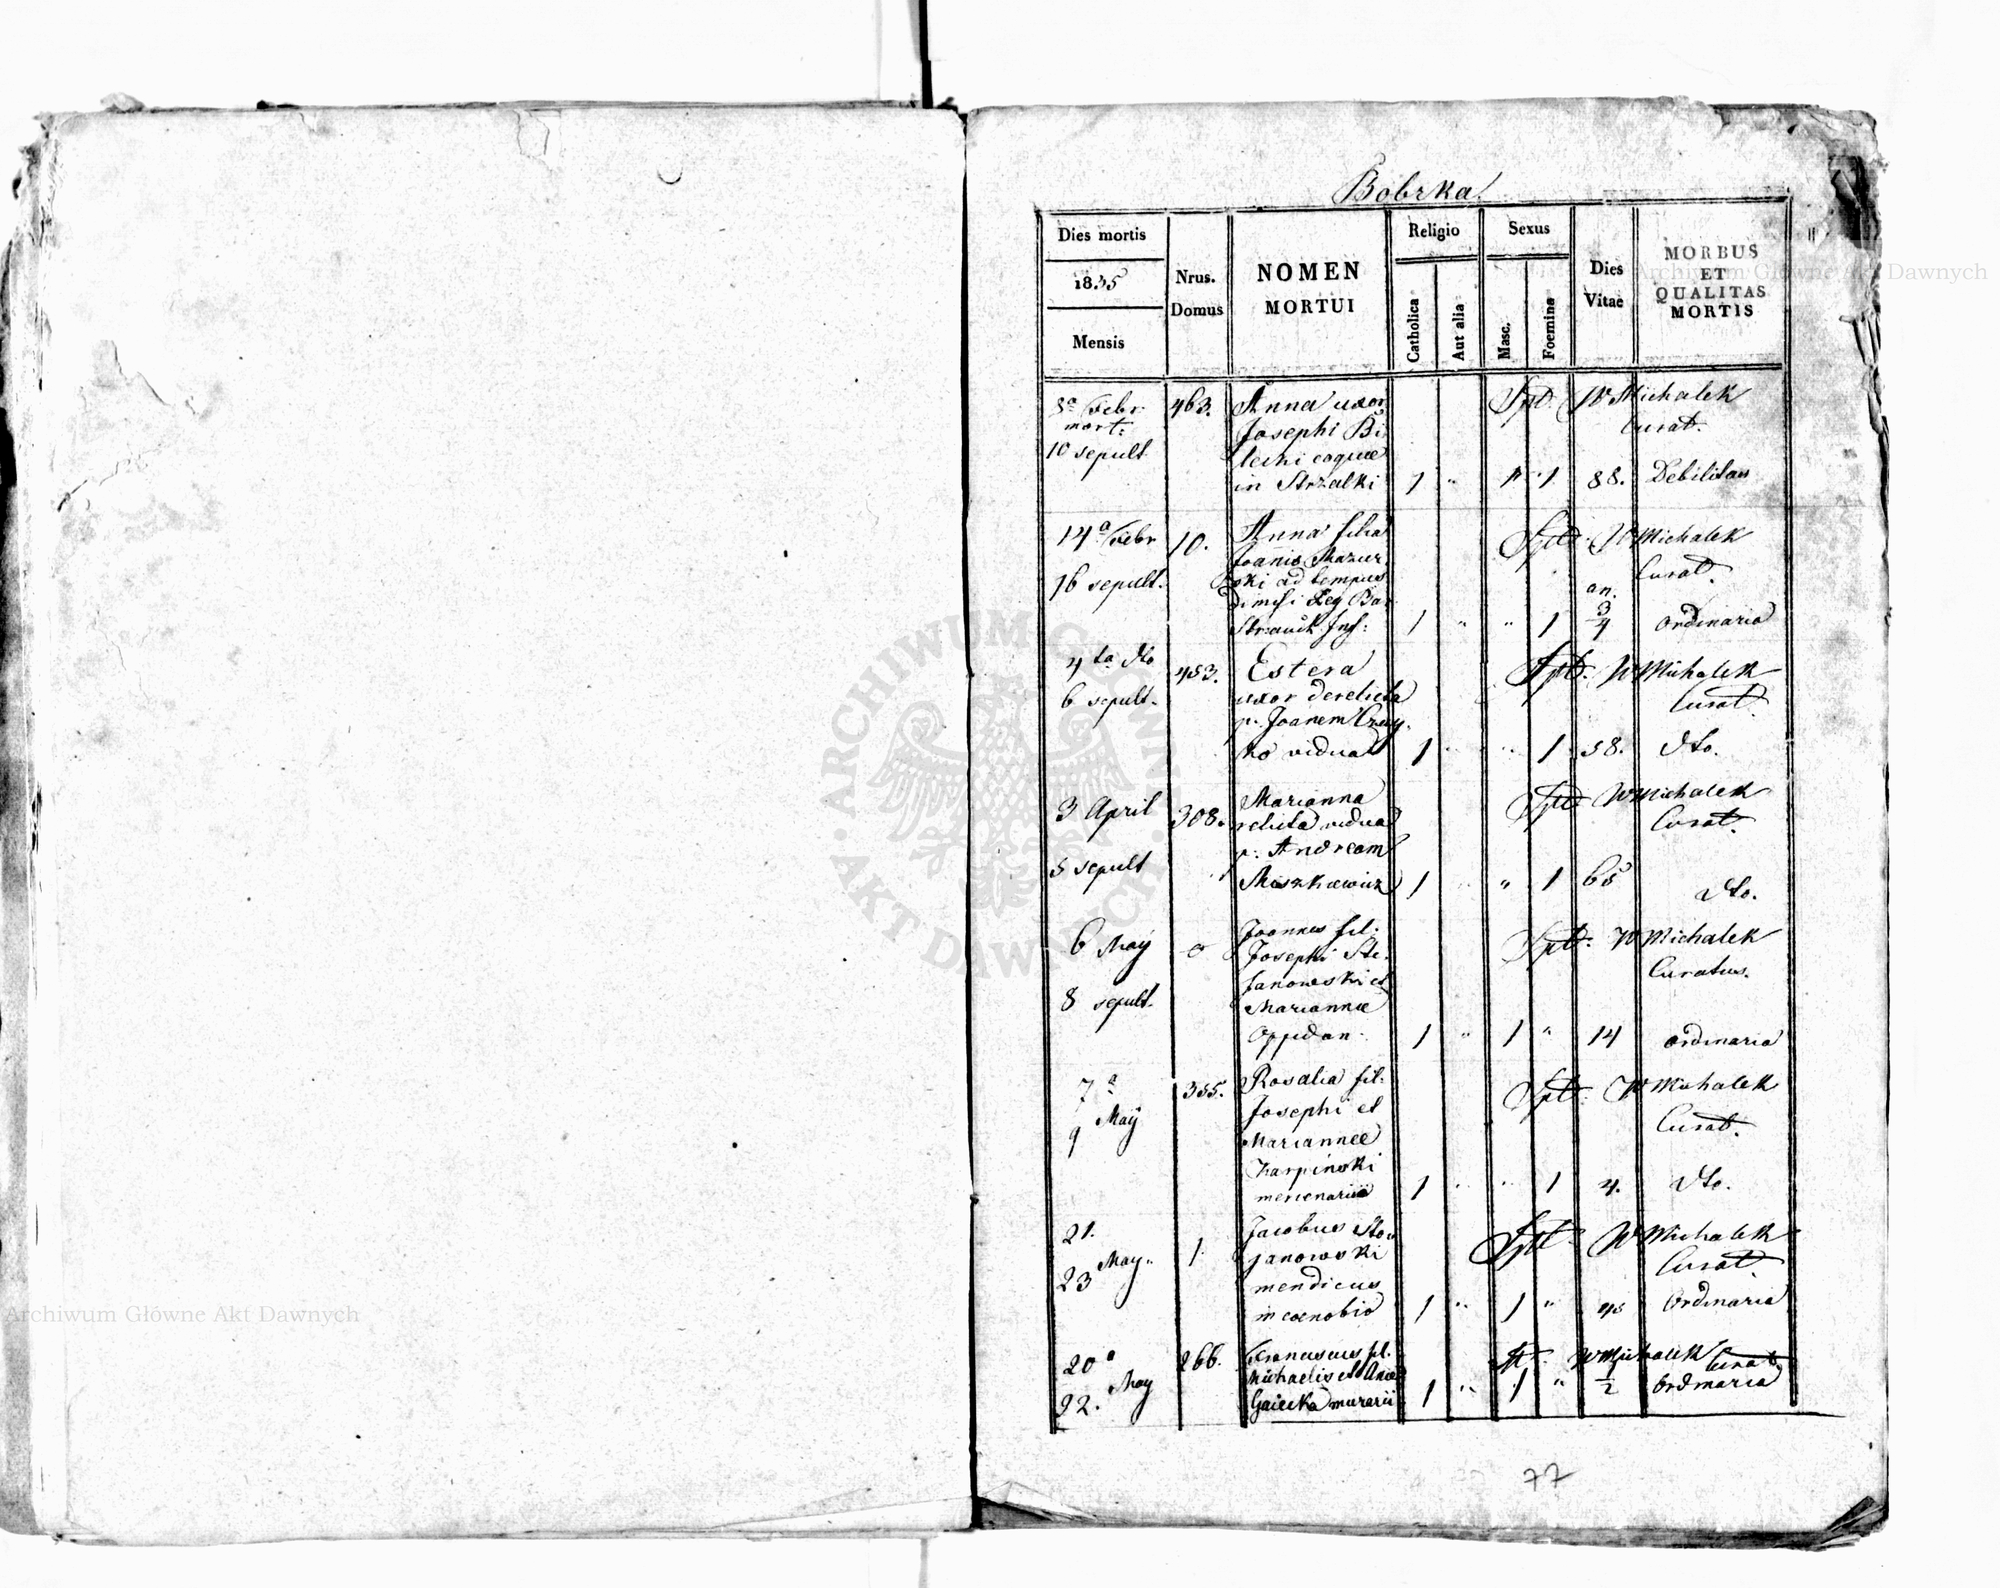 Bobrka
Dies mortis
1835
Mensis
Nrus.
Domus
NOMEN
MORTUI
Religio
Catholica
Aut alia
Sexus
Masc.
Foemina
Dies
Vitae
MORBUS
ET
QUALITAS
MORTIS
8a Febr. 463. Anna uxor W Michalek
mort: Josephi Bi Curat.
10 sepult
in Strzalki 1 " 1 88. Debilitas
14a Febr 10. Anna filia W Michalek
Joanis Mazur Curat.
16 sepult. ski ad tempus an.
1 " " 1 3/4 ordinaria
4ta dto 453. Estera W Michalek
6 sepult. uxor derelicta Curat.
p. Joanem
vidua 1 " " 1 58. dto.
3 April 308. Marianna W Michalek
relicta vidua Curat.
p. Andream
5 sepult 1 " " 1 65 dto.
6 May 0 Joannes fil. W Michalek
Josephi Ste Curatus.
janowski et
8 sepult. Mariannae
oppidan. 1 " 1 " 14 ordinaria
7a 355. Rosalia fil. W Michalek
May Josephi et Curat.
9 Mariannae
Karpinski
mercenarii 1 " " 1 4. dto.
21. 1 Jacobus Sto W Michalek
May janowski Curat.
23 mendicus
in coenobio 1 " 1 " 45 Ordinaria
20a 266. Franciscus fil. W Michalek Curat
May Michaelis et Annae
22. murarii 1 " 1 " 1/2 ordinaria
77
Archiwum Główne Akt Dawnych
Archiwum Główne Akt Dawnych
ARCHIWUM GŁÓWNE AKT DAWNYCH